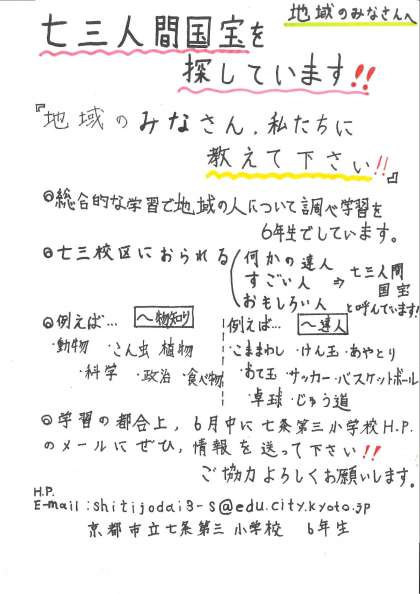 地域のみなさんへ
七三人間国宝を
探しています!!
『地域のみなさん、私たちに
教えて下さい!!』
◎総合的な学習で地域の人について調べ学習を
6年生でしています。
◎七三校区におられる
何かの達人
すごい人
おもしろい人
⇒七三人間
国宝
と呼んでいます!
◎例えば…
〜物知り
・動物 ・こん虫 植物
・科学 ・政治 ・食べ物
例えば…
〜達人
・こままわし ・けん玉 ・あやとり
・お手玉 ・サッカー ・バスケットボール
・卓球 ・じゅう道
◎学習の都合上、6月中に七条第三小学校H.P.
のメールにぜひ、情報を送って下さい!!
ご協力よろしくお願いします。
H.P.
E-mail:shitijodai3-s@edu.city.kyoto.jp
京都市立七条第三小学校 6年生